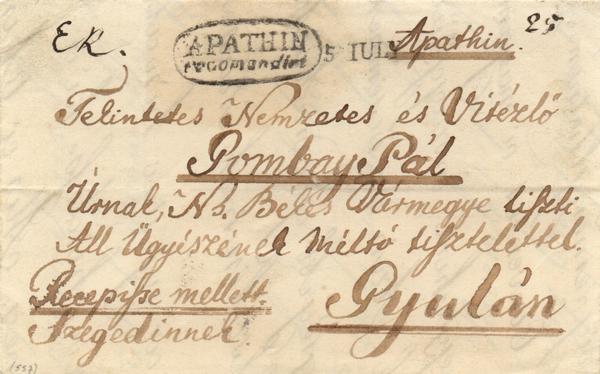 ER. APATHIN 5 IULY Apathin. 25
recomandirt
Tekintetes Nemzetes és Vitézlő
Gombay Pál
Úrnak, Ns. Békés Vármegye tiszti
All Ügyészének méltó tisztelettel.
Recepisse mellett. Gyulán
Szegedinnek.
(557)